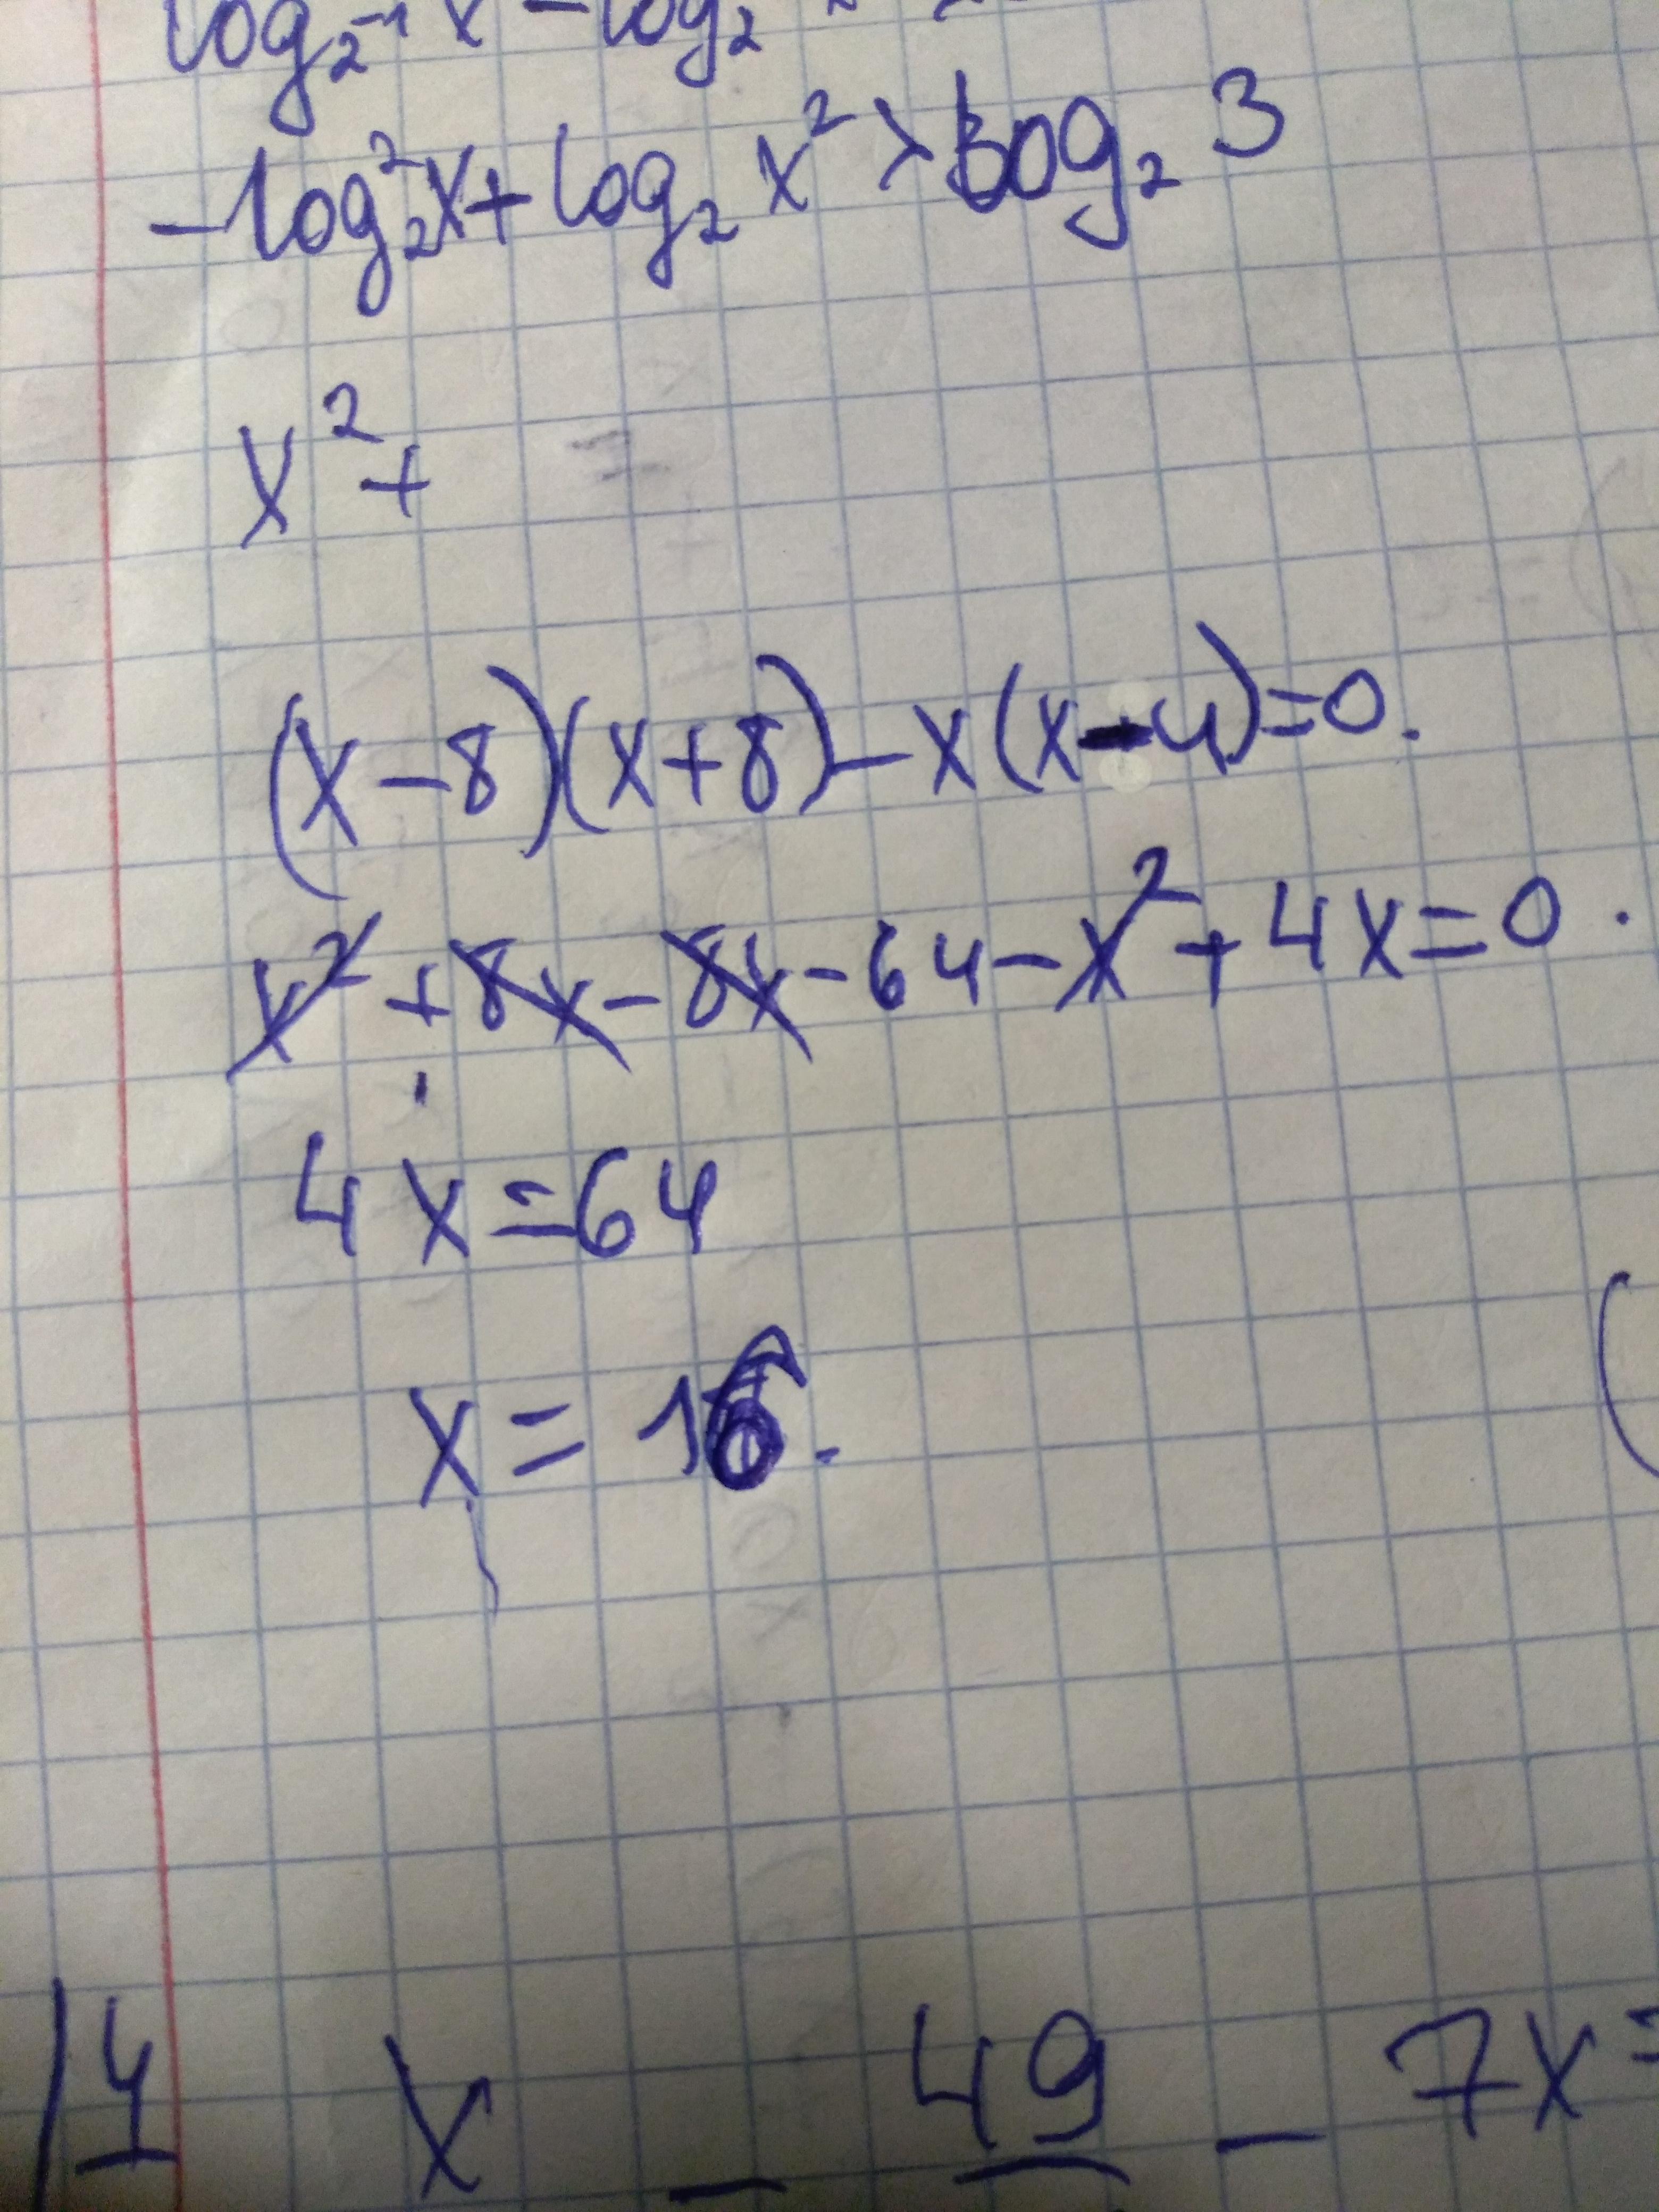 log₂₋₁ x - log₂
-log₂²x + log₂ x² > log₂ 3
x² +
(x-8)(x+8) - x(x-4)=0.
x² + 8x - 8x - 64 - x² + 4x = 0.
4x = 64
x = 16.
14 x - 49 - 7x =